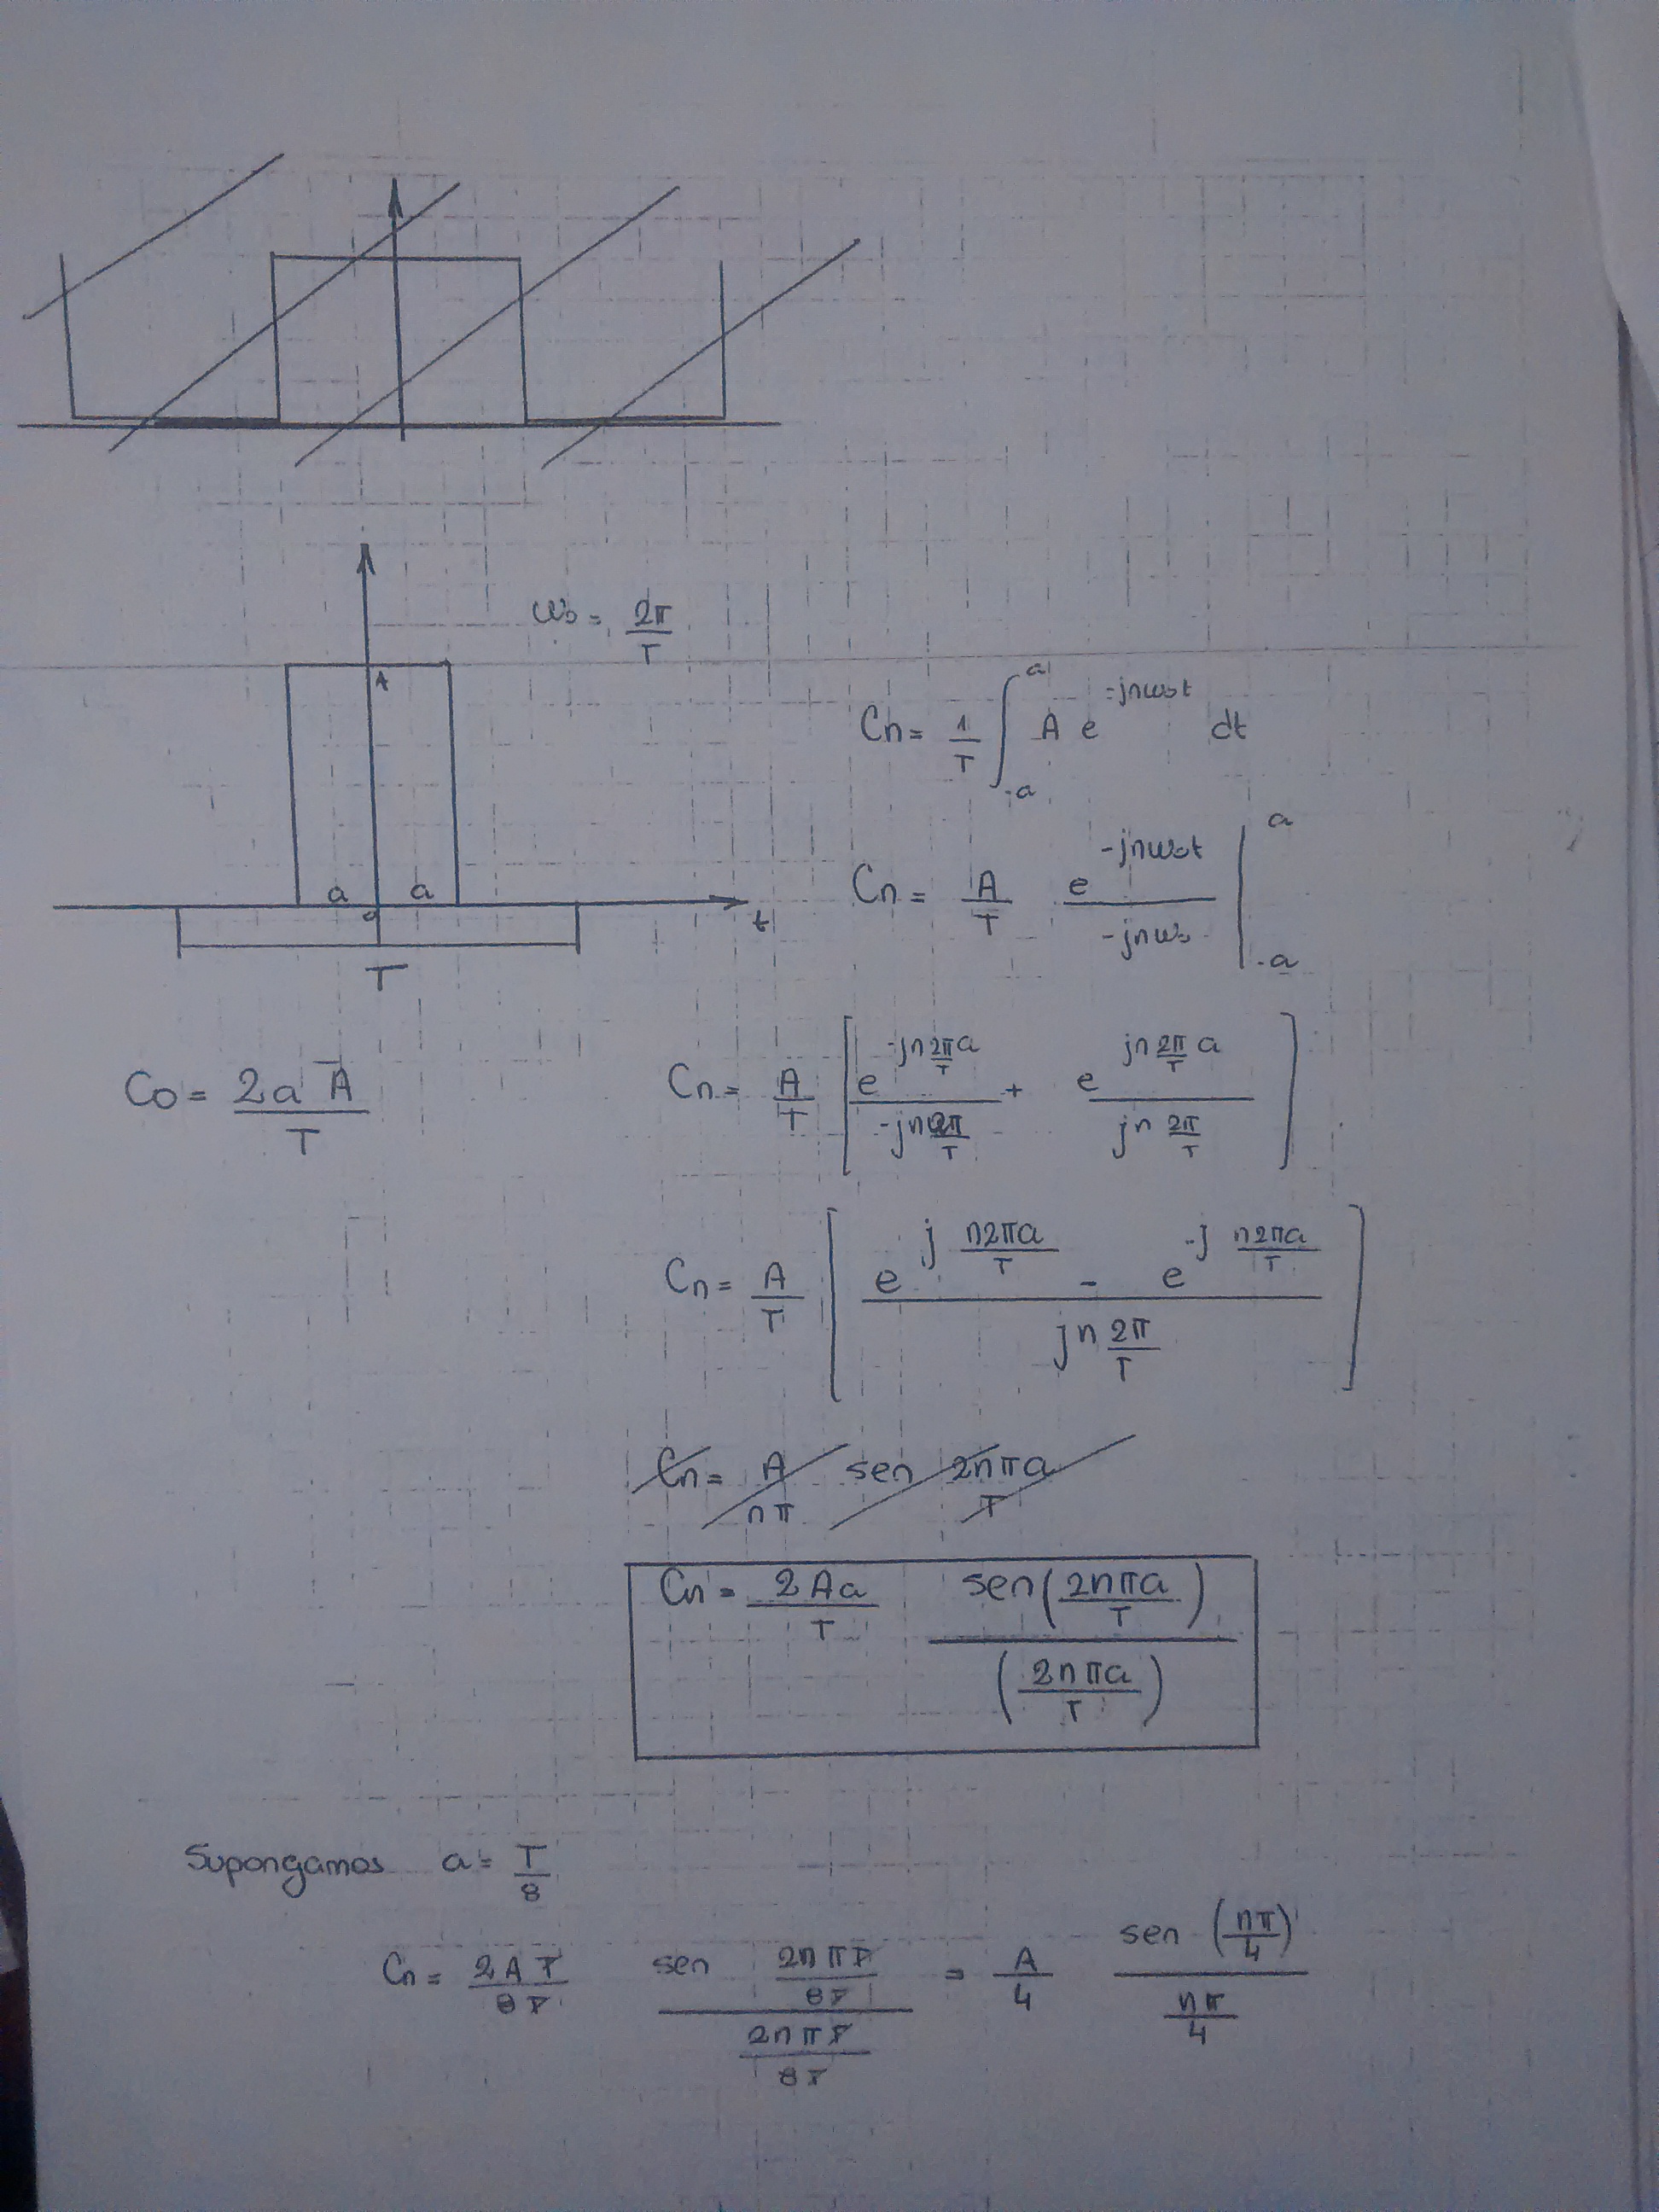 ω₀ = 2π/T
A
a a
0
t
T
Cn = 1/T ∫₋ₐᵃ A e^(-jnω₀t) dt
Cn = A/T e^(-jnω₀t)/(-jnω₀) |₋ₐᵃ
C0 = 2aA/T
Cn = A/T [ e^(-jn 2π/T a)/(-jn 2π/T) + e^(jn 2π/T a)/(jn 2π/T) ]
Cn = A/T [ (e^(j n2πa/T) - e^(-j n2πa/T))/(jn 2π/T) ]
Cn = A/nπ sen 2nπa/T
Cn = 2Aa/T sen(2nπa/T)/(2nπa/T)
Supongamos a = T/8
Cn = 2AT/8T (sen 2nπT/8T)/(2nπT/8T) = A/4 sen(nπ/4)/(nπ/4)